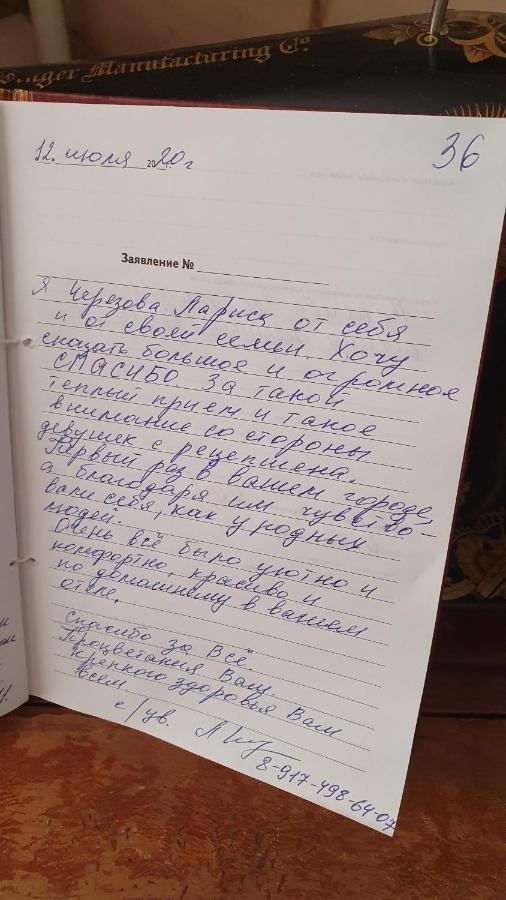 Singer Manufacturing Co
36
12. июля 2020 г
Заявление №
Я Черезова Лариса от себя
и от своей семьи. Хочу
сказать большое и огромное
СПАСИБО за такой
тёплый приём и такое
внимание со стороны
девушек с рецепшена.
Первый раз в вашем городе,
а благодаря им чувство-
вали себя, как у родных
людей.
Очень всё было уютно и
комфортно, красиво и
по домашнему в вашем
отеле.
Спасибо за Всё.
Процветания Вам.
Крепкого здоровья Вам
всем
с/ув.
8-917-498-64-07